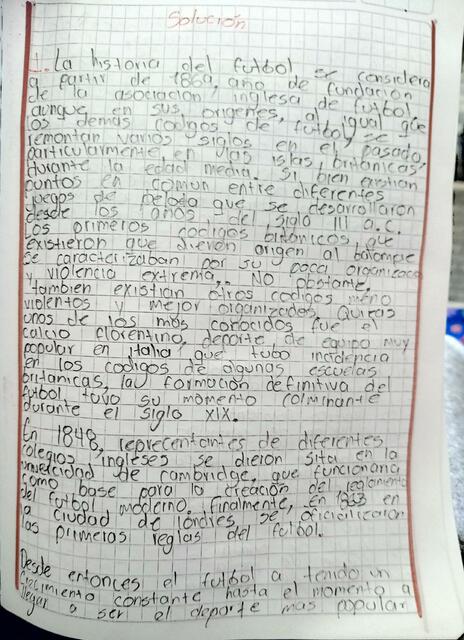 Solución
1. La historia del futbol se considera
a partir de 1863, año de fundación
de la asociación inglesa de futbol,
aunque en sus origenes, al igual que
los demas codigos de futbol, se
remontan varios siglos en el pasado,
particularmente en las islas britanicas
durante la edad media. Si bien existian
puntos en comun entre diferentes
juegos de pelota que se desarrollaron
desde los años del siglo III a.c.
Los primeros codigos britonicos que
existieron que dieron origen al balompie
se caracterizaban por su poca organizaco
y violencia extrema,. No obstante,
tambien existian otros codigos meno
violentos y mejor organizados, Quizas
unos de los mos conocidos fue el
calcio florentino, deporte de equipo muy
popular en italia que tubo incidencia
en los codigos de algunas escuelas
britanicas, la formación definitiva del
futbol tuvo su momento colminante
durante el siglo XIX.
En 1848, reprecentantes de diferentes
colegios ingleses se dieron sita en la
de cambridge, que funcionaria
como base para la creación del reglamento
del futbol moderno. finalmente, en 1863 en
la ciudad de londres se oficializaron
las primeras reglas del futbol.
Desde entonces el futbol a tenido un
crecimiento constante hasta el momento a
llegar a ser el deporte mas popular